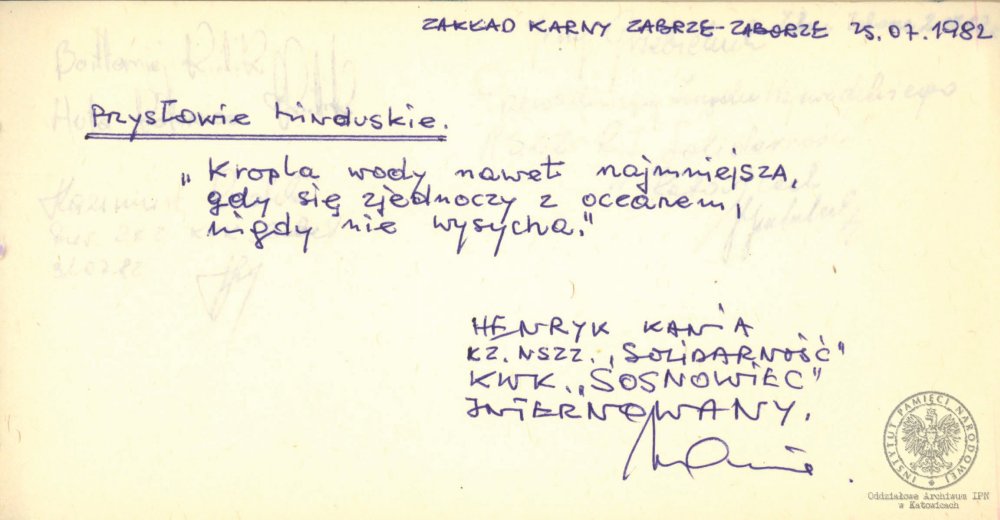 ZAKŁAD KARNY ZABRZE-ZABORZE 25.07.1982
Przysłowie hinduskie.
„Kropla wody nawet najmniejsza,
gdy się zjednoczy z oceanem,
nigdy nie wysycha."
HENRYK KANIA
KZ. NSZZ. „SOLIDARNOŚĆ"
KWK. „SOSNOWIEC"
INTERNOWANY.
INSTYTUT PAMIĘCI NARODOWEJ
Oddziałowe Archiwum IPN
w Katowicach